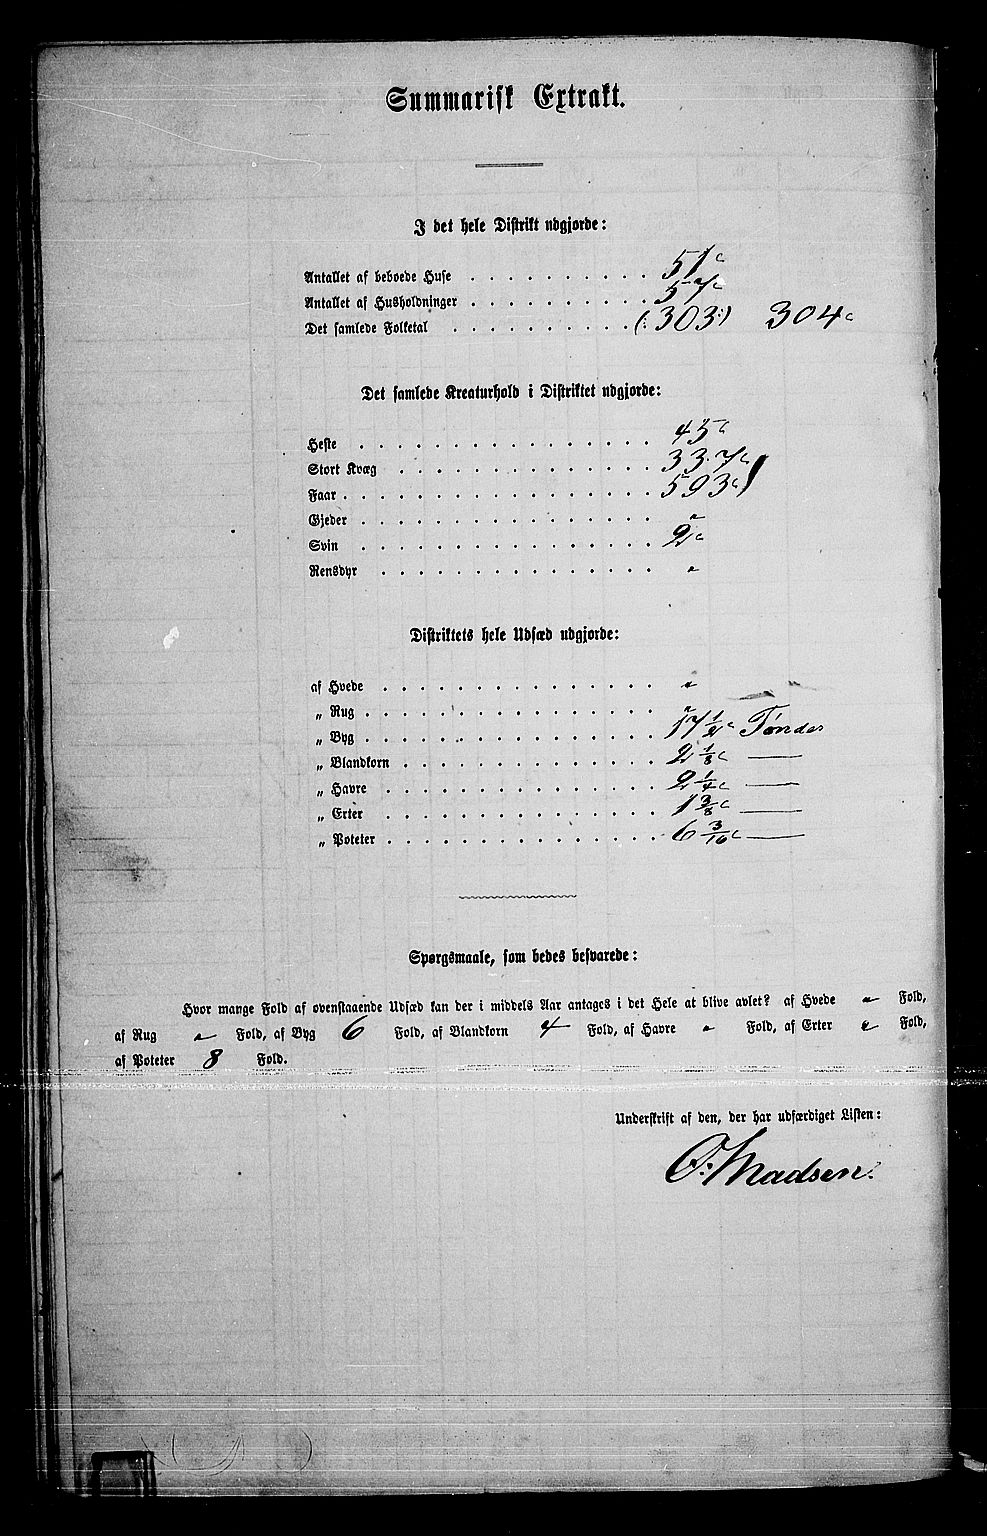 Summarisk Extrakt.
I det hele Distrikt udgjorde:
Antallet af beboede Huse . . . . . . . . . . 51
Antallet af Husholdninger . . . . . . . . . . 57
Det samlede Folketal . . . . . . . . . . (:303:) 304
Det samlede Kreaturhold i Distriktet udgjorde:
Heste . . . . . . . . . . . . . . . . 45
Stort Kvæg . . . . . . . . . . . . . . 337
Faar . . . . . . . . . . . . . . . . . 593
Gjeder . . . . . . . . . . . . . . . . "
Svin . . . . . . . . . . . . . . . . 2
Rensdyr . . . . . . . . . . . . . . . "
Distriktets hele Udsæd udgjorde:
af Hvede . . . . . . . . . . . . . . . "
„ Rug . . . . . . . . . . . . . . . . "
„ Byg . . . . . . . . . . . . . . . . 17 1/2 Tønder
„ Blandkorn . . . . . . . . . . . . . . 2 1/8 —
„ Havre . . . . . . . . . . . . . . . 2 1/4 —
„ Erter . . . . . . . . . . . . . . . 1 3/8 —
„ Poteter . . . . . . . . . . . . . . . 6 3/16 —
Spørgsmaale, som bedes besvarede:
Hvor mange Fold af ovenstaaende Udsæd kan der i middels Aar antages i det Hele at blive avlet? af Hvede " Fold,
af Rug " Fold, af Byg 6 Fold, af Blandkorn 4 Fold, af Havre " Fold, af Erter " Fold,
af Poteter 8 Fold.
Underskrift af den, der har udfærdiget Listen:
O: Madsen.